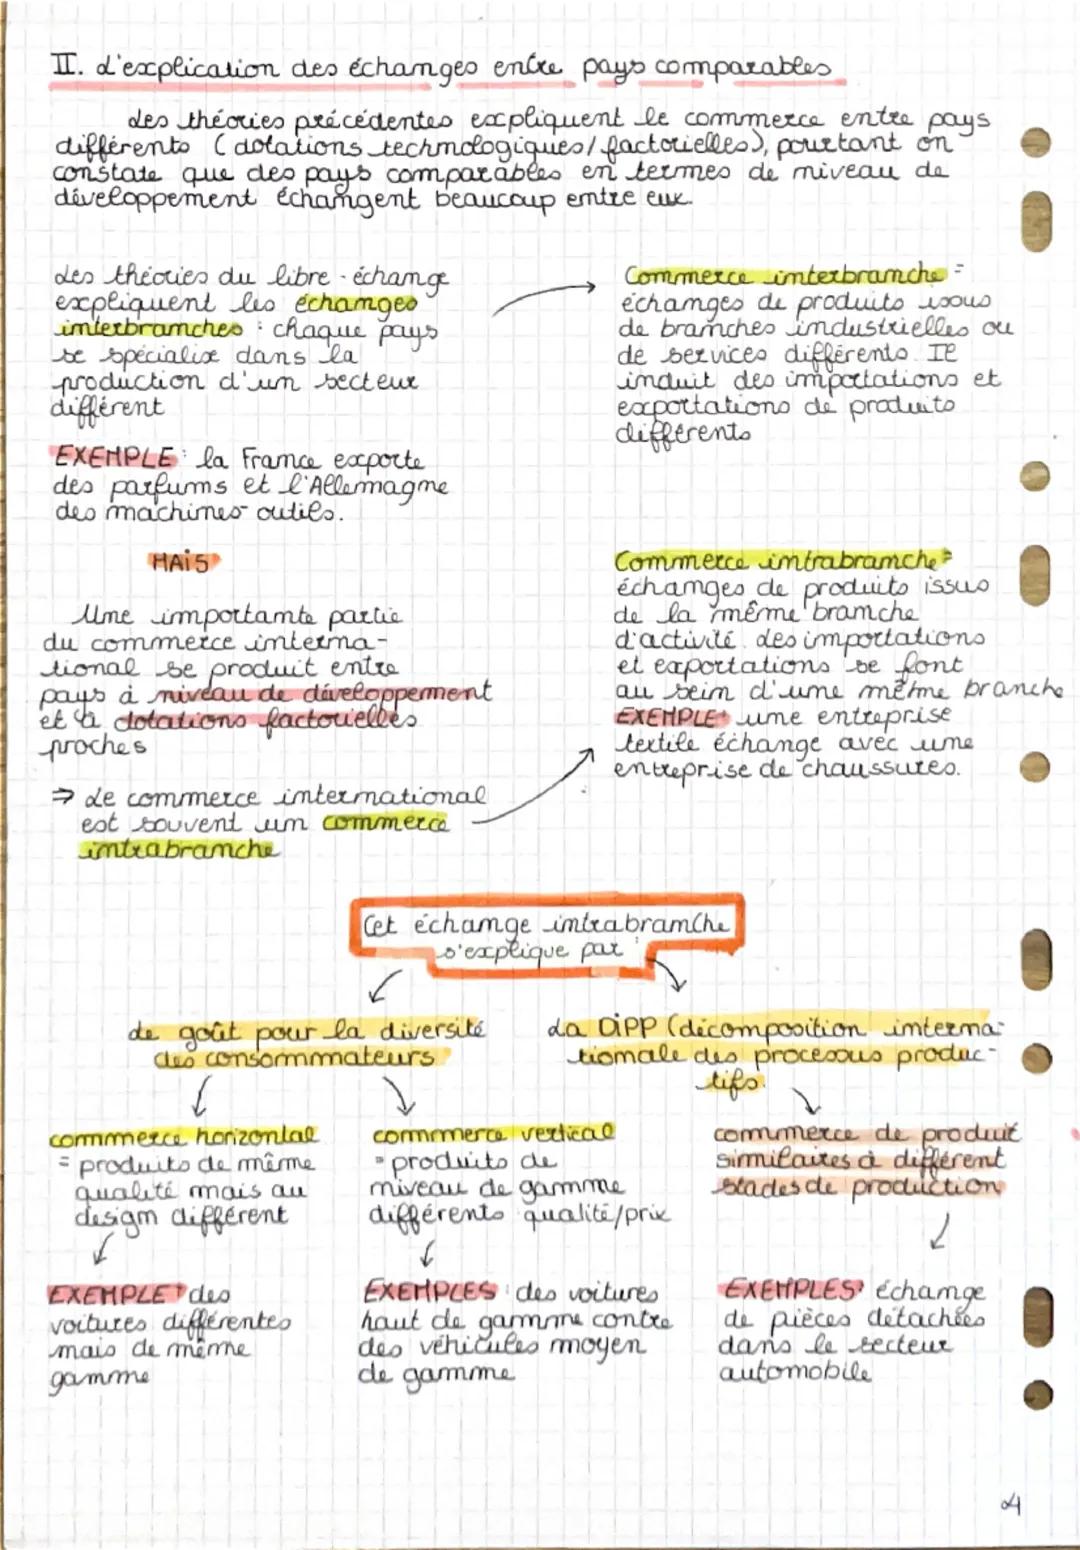 II. L'explication des échanges entre pays comparables
Les théories précédentes expliquent le commerce entre pays
différents (dotations technologiques/factorielles), pourtant on
constate que des pays comparables en termes de niveau de
développement échangent beaucoup entre eux.
Les théories du libre-échange
expliquent les échanges
interbranches : chaque pays
se spécialise dans la
production d'un secteur
différent
EXEMPLE : la France exporte
des parfums et l'Allemagne
des machines-outils.
Commerce interbranche =
échanges de produits issus
de branches industrielles ou
de services différents. Il
induit des importations et
exportations de produits
différents
MAiS
Une importante partie
du commerce interna-
tional se produit entre
pays à niveau de développement
et à dotations factorielles
proches
⇒ Le commerce international
est souvent un commerce
intrabranche
Commerce intrabranche =
échanges de produits issus
de la même branche
d'activité. Les importations
et exportations se font
au sein d'une même branche
EXEMPLE : une entreprise
textile échange avec une
entreprise de chaussures.
Cet échange intrabranche
s'explique par :
Le goût pour la diversité
des consommmateurs
La DiPP (décomposition interna-
tionale des processus produc-
tifs.
commerce horizontal
= produits de même
qualité mais au
design différent
EXEMPLE : des
voitures différentes
mais de même
gamme
commerce vertical
= produits de
niveau de gamme
différents qualité/prix
EXEMPLES : des voitures
haut de gamme contre
des véhicules moyen
de gamme
commerce de produit
similaires à différent
stades de production
EXEMPLES : échange
de pièces détachées
dans le secteur
automobile
4